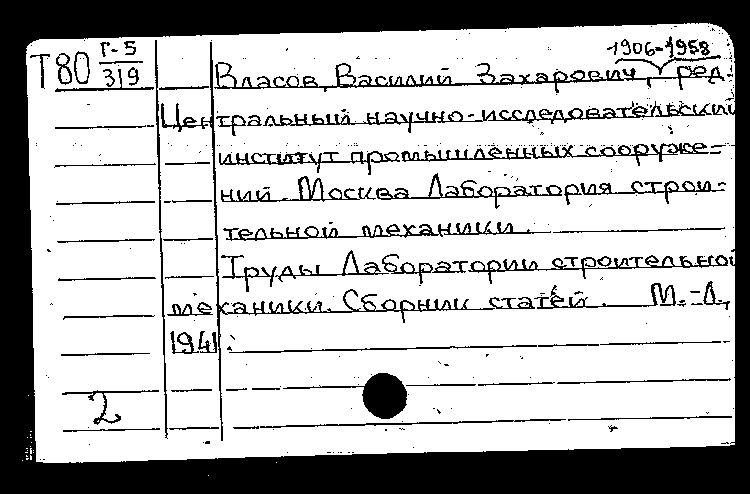 1906-1958
Т80 Г-5
319
Власов, Василий Захарович, ред.
Центральный научно-исследовательский
институт промышленных сооруже=
ний. Москва Лаборатория строи-
тельной механики.
Труды Лаборатории строительной
механики. Сборник статей. М.-Л.,
1941.
2